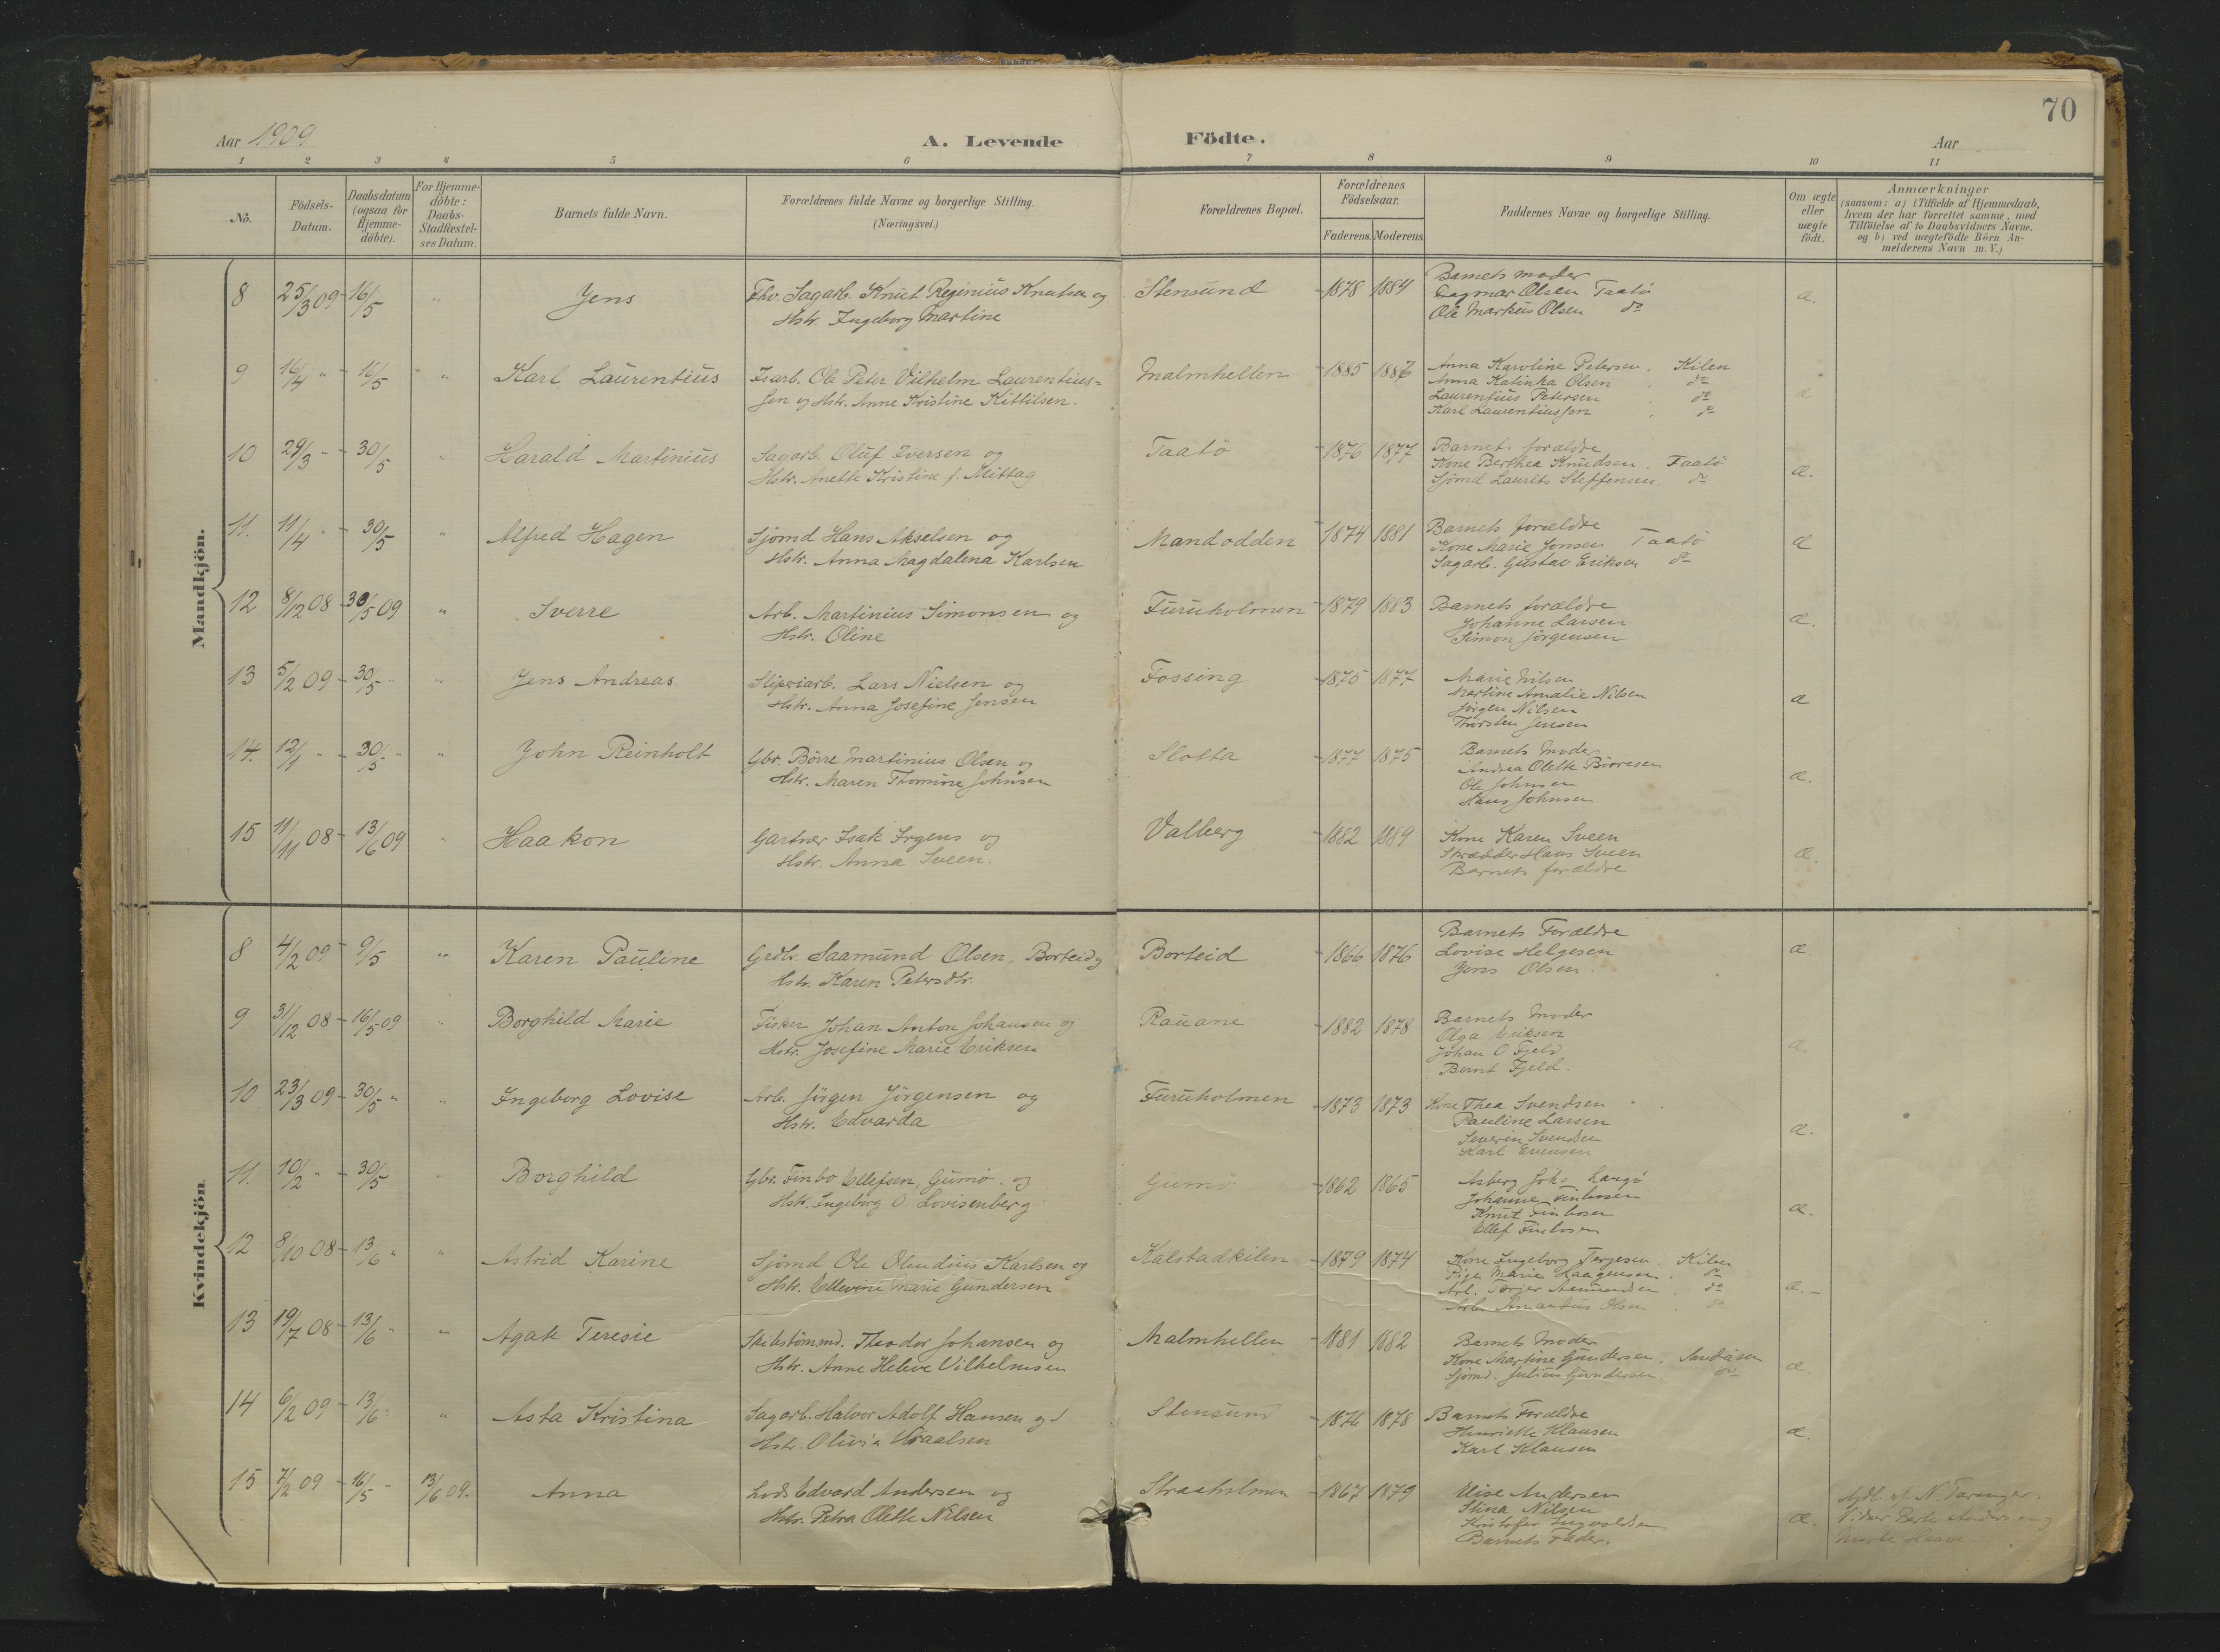 70
Aar 1909
A. Levende Födte.
Aar
1 2 3 4 5 6 7 8 9 10 11
No.
Födsels-Datum.
Daabsdatum (ogsaa for Hjemme-döbte).
For Hjemme-döbte: Daabs-Stadfæstel-ses Datum.
Barnets fulde Navn.
Forældrenes fulde Navne og borgerlige Stilling.
(Næringsvei.)
Forældrenes Bopæl.
Forældrenes Födselsaar.
Faderens. Moderens
Faddernes Navne og borgerlige Stilling.
Om ægte eller uægte födt.
Anmærkninger
(saasom: a) i Tilfælde af Hjemmedaab,
hvem der har forrettet samme, med
Tilföielse af to Daabsvidners Navne.
og b) ved uægtefödte Börn An-
melderens Navn m.V.)
Mandkjön.
8 25/3 09 16/5 " Jens
Fhv. Sagarb. Knut Reginius Knutsen og
Hstr. Ingeborg Martine
Stensund 1878 1884
Barnets moder
Dagmar Olsen Taatö
Ole Markus Olsen do
æ.
9 16/4 " 16/5 " Karl Laurentius
Isarb. Ole Peter Vilhelm Laurentius=
sen og Hstr. Anne Kristine Kittilsen.
Malmhellen 1885 1886
Anna Karoline Petersen. Kilen
Anna Katinka Olsen do
Laurentius Petersen do
Karl Laurentiussen do
æ
10 29/3 " 30/5 " Harald Martinius
Sagarb. Oluf Iversen og
Hstr. Anette Kristine f. Mittag
Taatö 1876 1877
Barnets forældre
Kone Berthea Knudsen. Taatö
Sjömd Laurits Steffensen. do
æ.
11. 11/4 " 30/5 " Alfred Hagen
Sjömd Hans Akselsen og
Hstr. Anna Magdalena Karlsen
Mandodden 1874 1881
Barnets forældre
Kone Marie Jonsen Taatö
Sagarb. Gustav Eriksen do
æ
12 8/12 08 30/5 09 " Sverre
Arb. Martinius Simonsen og
Hstr. Oline
Furuholmen 1879 1883
Barnets forældre
Johanne Larsen
Simon Jörgensen
æ.
13 5/2 09 30/5 " Jens Andreas
Sliperiarb. Lars Nielsen og
Hstr. Anna Josefine Jensen
Fossing 1875 1877
Marie Nilsen
Martine Amalie Nilsen
Jörgen Nilsen
Thorsten Jensen
æ
14. 12/1 " 30/5 " " John Reinholt
Gbr. Börre Martinius Olsen og
Hstr. Maren Thomine Johnsen
Slotta 1877 1875
Barnets Moder
Andrea Olette Börresen
Ole Johnsen
Hans Johnsen
æ.
15 11/11 08 13/6 09 " Haakon
Gartner Isak Irgens og
Hstr. Anna Sveen.
Valberg 1882 1889
Kone Karen Sveen
Skrædder Hans Sveen
Barnets forældre
æ.
Kvindekjön
8 4/2 09 9/5 " Karen Pauline
Grdbr. Saamund Olsen, Borteid og
Hstr. Karen Petersdtr.
Borteid 1866 1876
Barnets Forældre
Lovise Helgesen
Jens Olsen
æ.
9 31/12 08 16/5 09 " Borghild Marie
Fisker Johan Anton Johansen og
Hstr. Josefine Marie Eriksen
Rauane 1882 1878
Barnets Moder
Olga Eriksen
Johan O Fjeld
Bernt Fjeld.
æ.
10 23/3 09 30/5 " " Ingeborg Lovise
Arb. Jörgen Jörgensen og
Hstr. Edvarda
Furuholmen 1873 1873
Kone Thea Svendsen
Pauline Larsen
Severin Svendsen
Karl Evensen
æ.
11. 10/2 " 30/5 " Borghild
Gbr. Finbo Ellefsen, Gumö. og
Hstr. Ingeborg O. Lovisenberg
Gumö 1862 1865
Asberg Johs Langö
Johanne Finbosen
Knut Finbosen
Ellef Finbosen
æ.
12 8/10 08 13/6 " " Astrid Karine
Sjömd Ole Olendius Karlsen og
Hstr. Ellevine Marie Gundersen
Kalstadkilen 1879 1874
Kone Ingeborg Terjesen. Kilen
Pige Marie Haagensen. do
Arb. Terjer Aamundsen. do
Arb. Amandus Olsen do
æ.
13 19/7 08 13/6 " " Agak Teresie
Skibstömmd. Theodor Johansen og
Hstr. Anne Heleve Vilhelmsen
Malmhellen 1881 1882
Barnets Moder
Kone Martine Gundersen.
Sjömd. Julius Gundersen do
æ.
14 6/2 09 13/6 " " Asta Kristina
Sagarb. Halvor Adolf Hansen og
Hstr. Olivia Kraalsen
Stensund 1876 1878
Barnets Forældre
Henriette Klausen
Karl Klausen
æ.
15 7/2 09 16/5 " 13/6 09. Anna
Lods Edvard Andersen og
Hstr. Petra Olette Nilsen
Straaholmen 1867 1879
Elise Andersen
Stina Nilsen
Kristofer Ingvoldsen
Barnets Fader.
æ.
N. Taranger.
Marte Haave